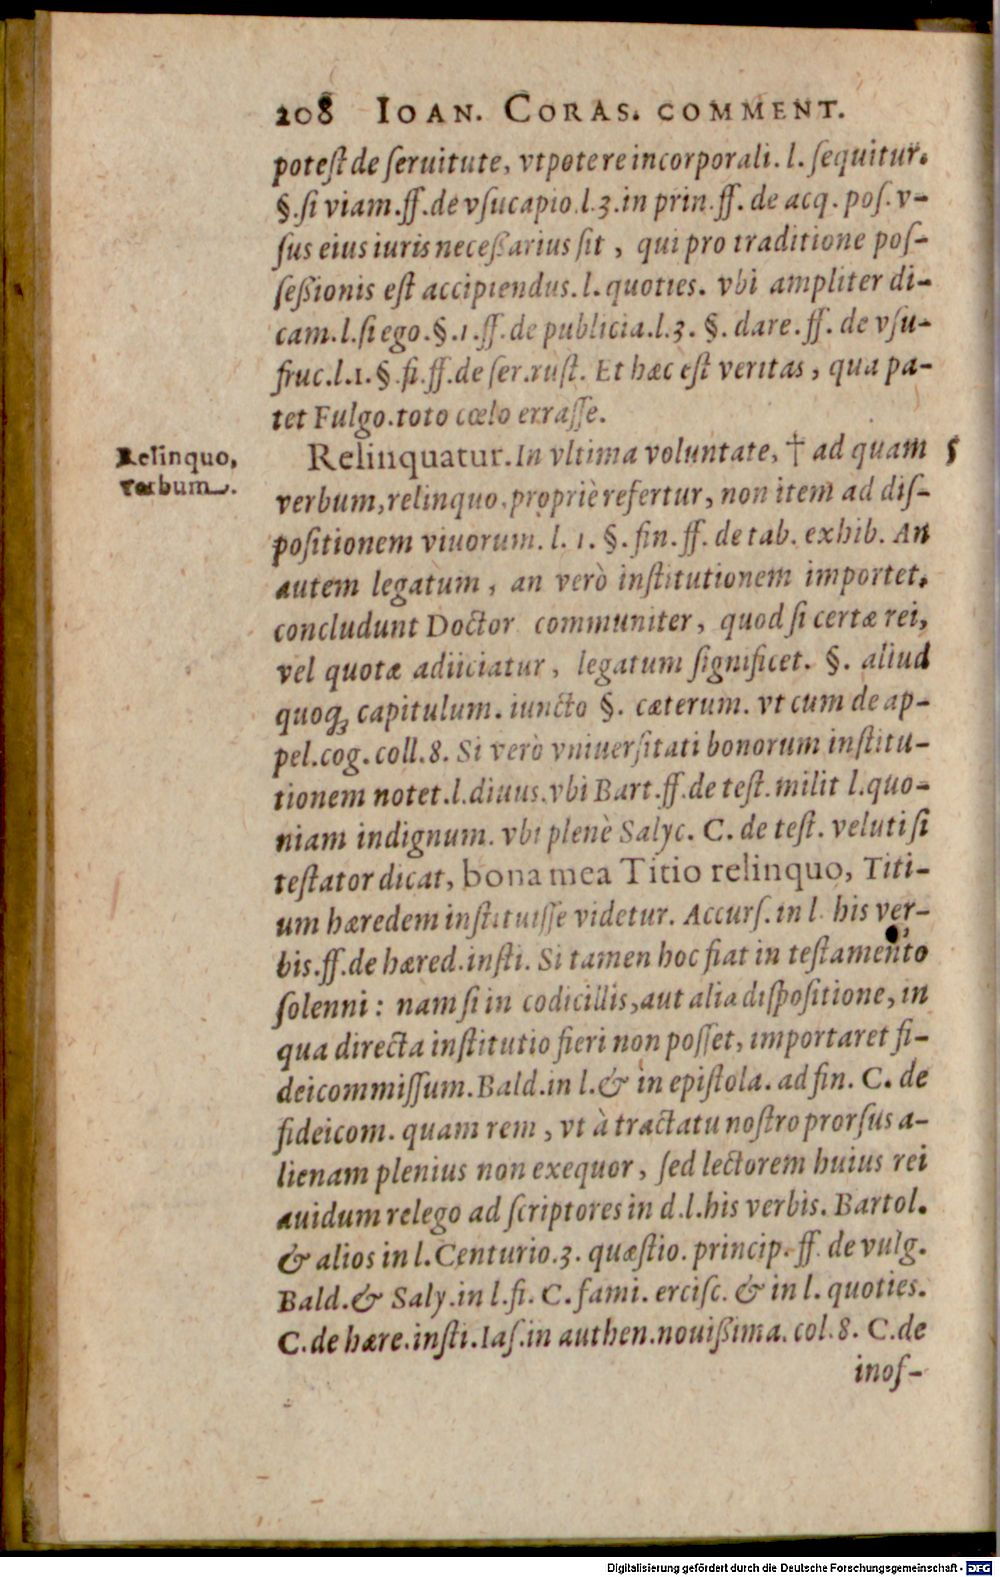 208 IOAN. CORAS. COMMENT.
potest de seruitute, vtpote re incorporali. l. sequitur.
§. si viam. ff. de vsucapio. l. 3. in prin. ff. de acq. pos. v-
sus eius iuris neceßarius sit, qui pro traditione pos-
seßionis est accipiendus. l. quoties. vbi ampliter di-
cam. l. si ego. §. 1. ff. de publicia. l. 3. §. dare. ff. de vsu-
fruc. l. 1. §. fi. ff. de ser. rust. Et hæc est veritas, qua pa-
tet Fulgo. toto cœlo errasse.
Relinquo, verbum.
Relinquatur. In vltima voluntate, † ad quam 5
verbum, relinquo. propriè refertur, non item ad dis-
positionem viuorum. l. 1. §. fin. ff. de tab. exhib. An
autem legatum, an verò institutionem importet,
concludunt Doctor communiter, quod si certæ rei,
vel quotæ adiiciatur, legatum significet. §. aliud
quoqꝫ capitulum. iuncto §. cæterum. vt cum de ap-
pel. cog. coll. 8. Si verò vniuersitati bonorum institu-
tionem notet. l. diuus. vbi Bart. ff. de test. milit l. quo-
niam indignum. vbi plenè Salyc. C. de test. veluti si
testator dicat, bona mea Titio relinquo, Titi-
um hæredem instituisse videtur. Accurs. in l. his ver-
bis. ff. de hæred. insti. Si tamen hoc fiat in testamento
solenni: nam si in codicillis, aut alia dispositione, in
qua directa institutio fieri non posset, importaret fi-
deicommissum. Bald. in l. & in epistola. ad fin. C. de
fideicom. quam rem, vt à tractatu nostro prorsus a-
lienam plenius non exequor, sed lectorem huius rei
auidum relego ad scriptores in d. l. his verbis. Bartol.
& alios in l. Centurio. 3. quæstio. princip. ff. de vulg.
Bald. & Saly. in l. fi. C. fami. ercisc. & in l. quoties.
C. de hære. insti. Ias. in authen. nouißima. col. 8. C. de
inof-
Digitalisierung gefördert durch die Deutsche Forschungsgemeinschaft - DFG